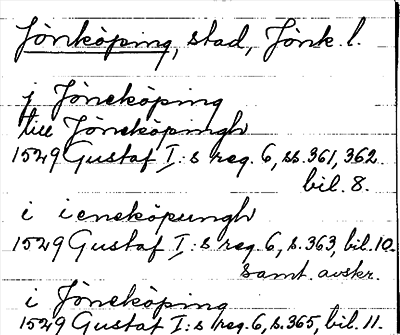 Jönköping, stad, Jönk. l.
j Jöneköping
till Jönekōpingh
1529 Gustaf I:s reg. 6, ss. 361, 362.
bil. 8.
i ieneköpungh
1529 Gustaf I:s reg. 6, s. 363, bil. 10.
Samt. avskr.
i Jöneköping
1529 Gustaf I:s reg. 6, s. 365, bil. 11.